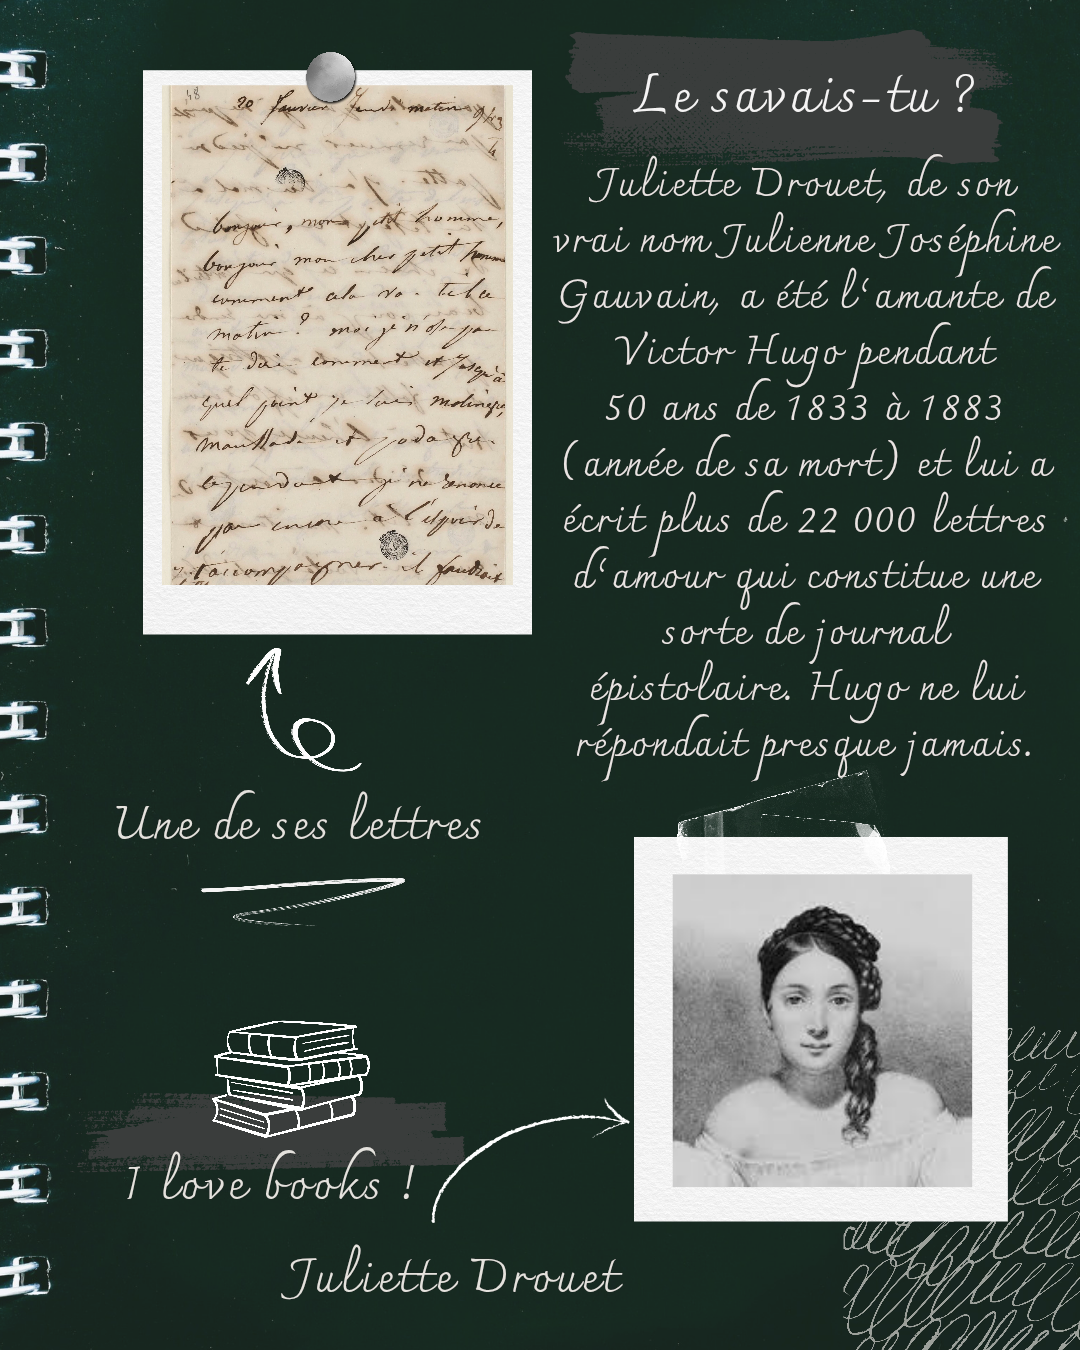 48
20 fevrier Jeudi matin
bonjour, mon petit homme,
bonjour mon cher petit homme
comment cela va-t-il ce
matin ? moi je n'ose pas
te dire comment et jusqu'à
quel point je suis
maussade et
cependant je ne renonce
pas encore à l'espoir de
t'accompagner. il faudrait
Une de ses lettres
Le savais-tu ?
Juliette Drouet, de son
vrai nom Julienne Joséphine
Gauvain, a été l‘amante de
Victor Hugo pendant
50 ans de 1833 à 1883
(année de sa mort) et lui a
écrit plus de 22 000 lettres
d‘amour qui constitue une
sorte de journal
épistolaire. Hugo ne lui
répondait presque jamais.
I love books !
Juliette Drouet